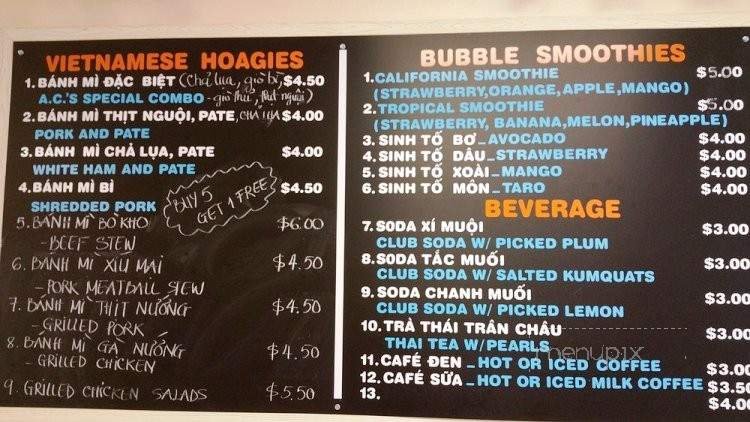 VIETNAMESE HOAGIES
1. BÁNH MÌ ĐẶC BIỆT (chả lụa, giò bì, $4.50
A.C.'S SPECIAL COMBO - giò thủ, thịt nguội)
2. BÁNH MÌ THỊT NGUỘI, PATE, CHẢ LỤA $4.00
PORK AND PATE
3. BÁNH MÌ CHẢ LỤA, PATE $4.00
WHITE HAM AND PATE
4. BÁNH MÌ BÌ $4.50
SHREDDED PORK
BUY 5
GET 1 FREE
5. BÁNH MÌ BÒ KHO $6.00
- BEEF STEW
6. BÁNH MÌ XÍU MẠI $4.50
- PORK MEATBALL STEW
7. BÁNH MÌ THỊT NƯỚNG $4.50
- GRILLED PORK
8. BÁNH MÌ GÀ NƯỚNG $4.50
- GRILLED CHICKEN
9. GRILLED CHICKEN SALADS $5.50
BUBBLE SMOOTHIES
1. CALIFORNIA SMOOTHIE $5.00
(STRAWBERRY, ORANGE, APPLE, MANGO)
2. TROPICAL SMOOTHIE $5.00
(STRAWBERRY, BANANA, MELON, PINEAPPLE)
3. SINH TỐ BƠ - AVOCADO $4.00
4. SINH TỐ DÂU - STRAWBERRY $4.00
5. SINH TỐ XOÀI - MANGO $4.00
6. SINH TỐ MÔN - TARO $4.00
BEVERAGE
7. SODA XÍ MUỘI $3.00
CLUB SODA W/ PICKED PLUM
8. SODA TẮC MUỐI $3.00
CLUB SODA W/ SALTED KUMQUATS
9. SODA CHANH MUỐI $3.00
CLUB SODA W/ PICKED LEMON
10. TRÀ THÁI TRÂN CHÂU $3.00
THAI TEA W/PEARLS
menupix
11. CAFÉ ĐEN - HOT OR ICED COFFEE $3.00
12. CAFÉ SỮA - HOT OR ICED MILK COFFEE $3.50
13. $4.00